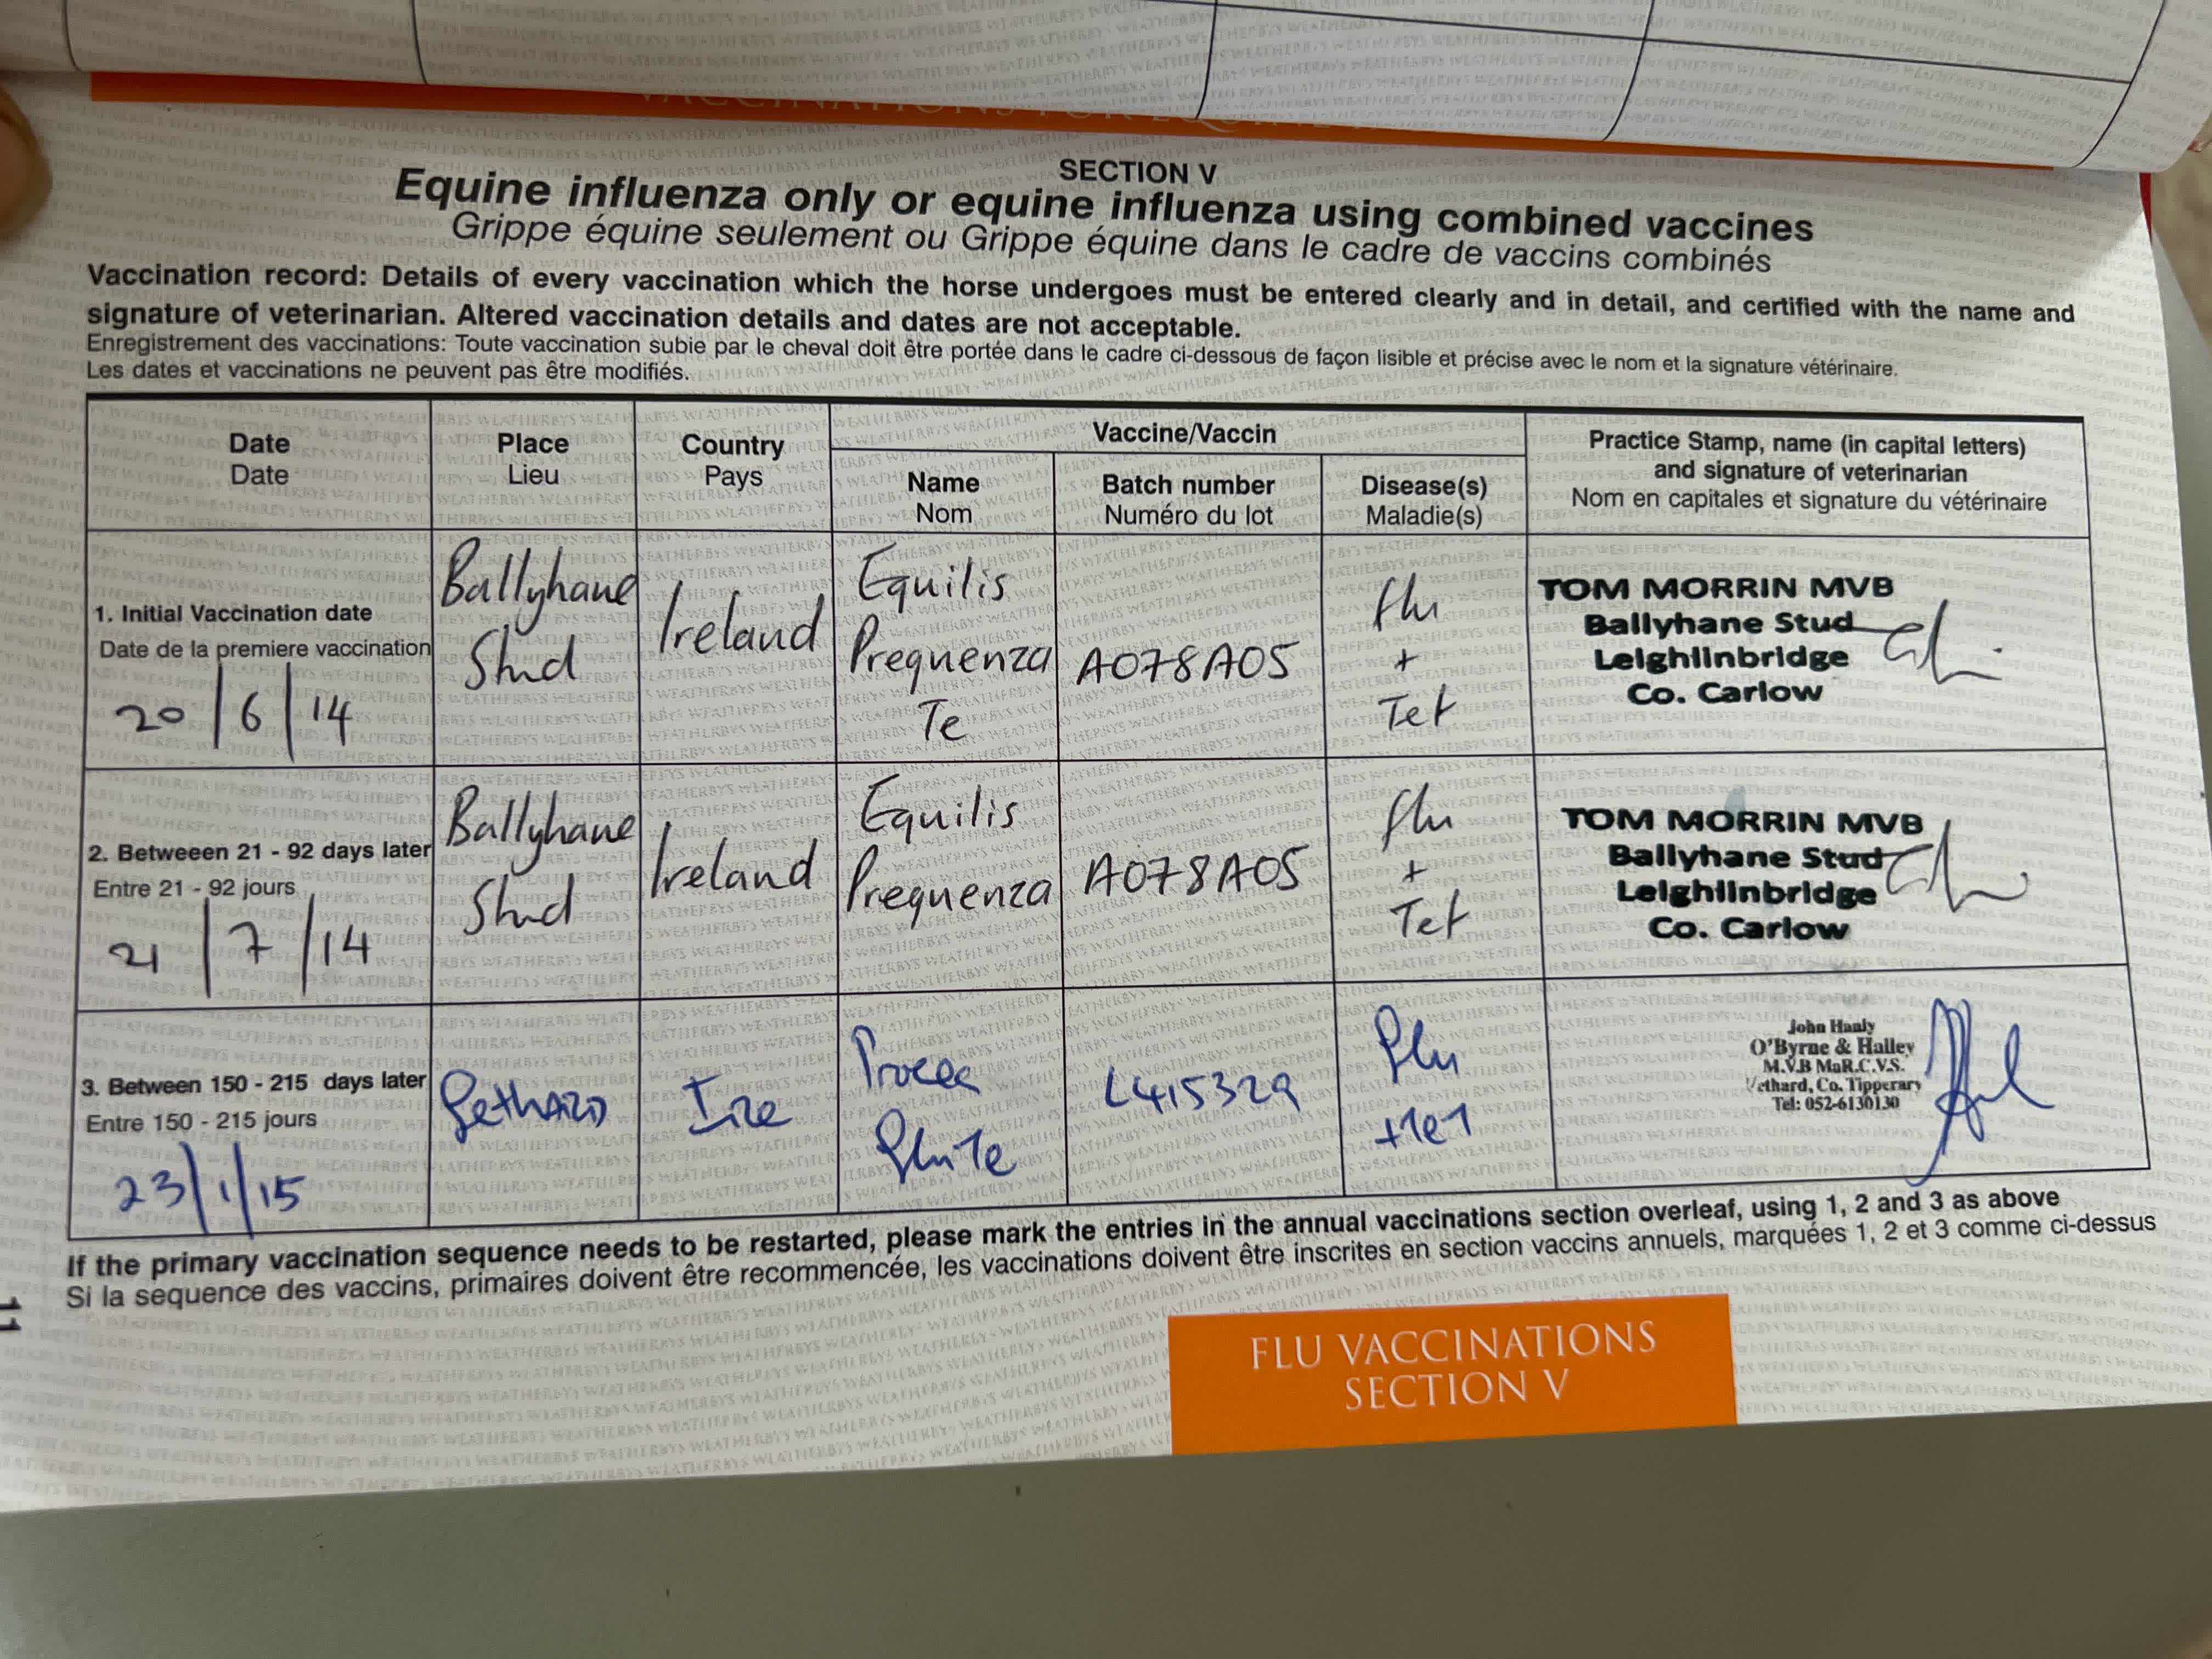 SECTION V
Equine influenza only or equine influenza using combined vaccines
Grippe équine seulement ou Grippe équine dans le cadre de vaccins combinés
Vaccination record: Details of every vaccination which the horse undergoes must be entered clearly and in detail, and certified with the name and
signature of veterinarian. Altered vaccination details and dates are not acceptable.
Enregistrement des vaccinations: Toute vaccination subie par le cheval doit être portée dans le cadre ci-dessous de façon lisible et précise avec le nom et la signature vétérinaire.
Les dates et vaccinations ne peuvent pas être modifiés.
Date
Date
Place
Lieu
Country
Pays
Vaccine/Vaccin
Name
Nom
Batch number
Numéro du lot
Disease(s)
Maladie(s)
Practice Stamp, name (in capital letters)
and signature of veterinarian
Nom en capitales et signature du vétérinaire
1. Initial Vaccination date
Date de la premiere vaccination
20/6/14
Ballyhane
Stud
Ireland
Equilis
Prequenza
Te
A078A05
flu
+
Tet
TOM MORRIN MVB
Ballyhane Stud
Leighlinbridge
Co. Carlow
2. Betweeen 21 - 92 days later
Entre 21 - 92 jours
21/7/14
Ballyhane
Stud
Ireland
Equilis
Prequenza
A078A05
flu
+
Tet
TOM MORRIN MVB
Ballyhane Stud
Leighlinbridge
Co. Carlow
3. Between 150 - 215 days later
Entre 150 - 215 jours
23/1/15
Ire
Flu Te
L415329
Flu
+Tet
John Hanly
O'Byrne & Halley
M.V.B MaR.C.V.S.
Fethard, Co. Tipperary
Tel: 052-6130130
If the primary vaccination sequence needs to be restarted, please mark the entries in the annual vaccinations section overleaf, using 1, 2 and 3 as above
Si la sequence des vaccins, primaires doivent être recommencée, les vaccinations doivent être inscrites en section vaccins annuels, marquées 1, 2 et 3 comme ci-dessus
11
FLU VACCINATIONS
SECTION V